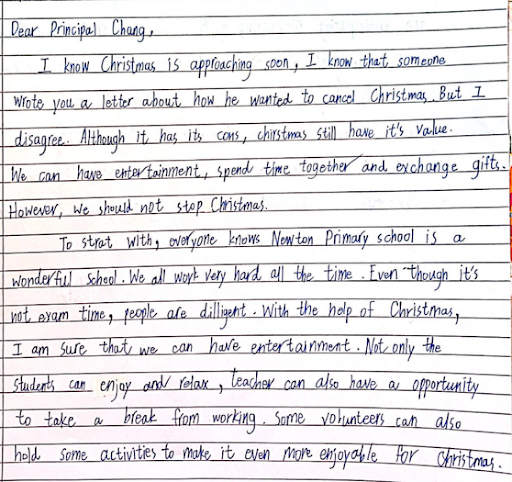 Dear Principal Chang,
I know Christmas is approaching soon, I know that someone
wrote you a letter about how he wanted to cancel Christmas. But I
disagree. Although it has its cons, chirstmas still have it's value.
We can have entertainment, spend time together and exchange gifts.
However, we should not stop Christmas.
To strat with, everyone knows Newton Primary school is a
wonderful school. We all work very hard all the time. Even though it's
not exam time, people are dilligent. With the help of Christmas,
I am sure that we can have entertainment. Not only the
students can enjoy and relax, teacher can also have a opportunity
to take a break from working. Some volunteers can also
hold some activities to make it even more enjoyable for Christmas.